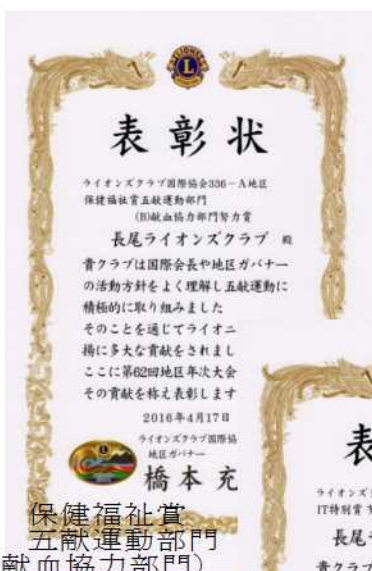 LIONS
L
表彰状
ライオンズクラブ国際協会336-A地区
保健福祉賞五献運動部門
(B)献血協力部門努力賞
長尾ライオンズクラブ 殿
貴クラブは国際会長や地区ガバナー
の活動方針をよく理解し五献運動に
積極的に取り組みました
そのことを通じてライオニ
揚に多大な貢献をされまし
ここに第62回地区年次大会
その貢献を称え表彰します
2016年4月17日
ライオンズクラブ国際協
地区ガバナー
橋本 充
保健福祉賞
五献運動部門
献血協力部門)
表
ライオンズ
IT特別賞
長尾
貴クラブ